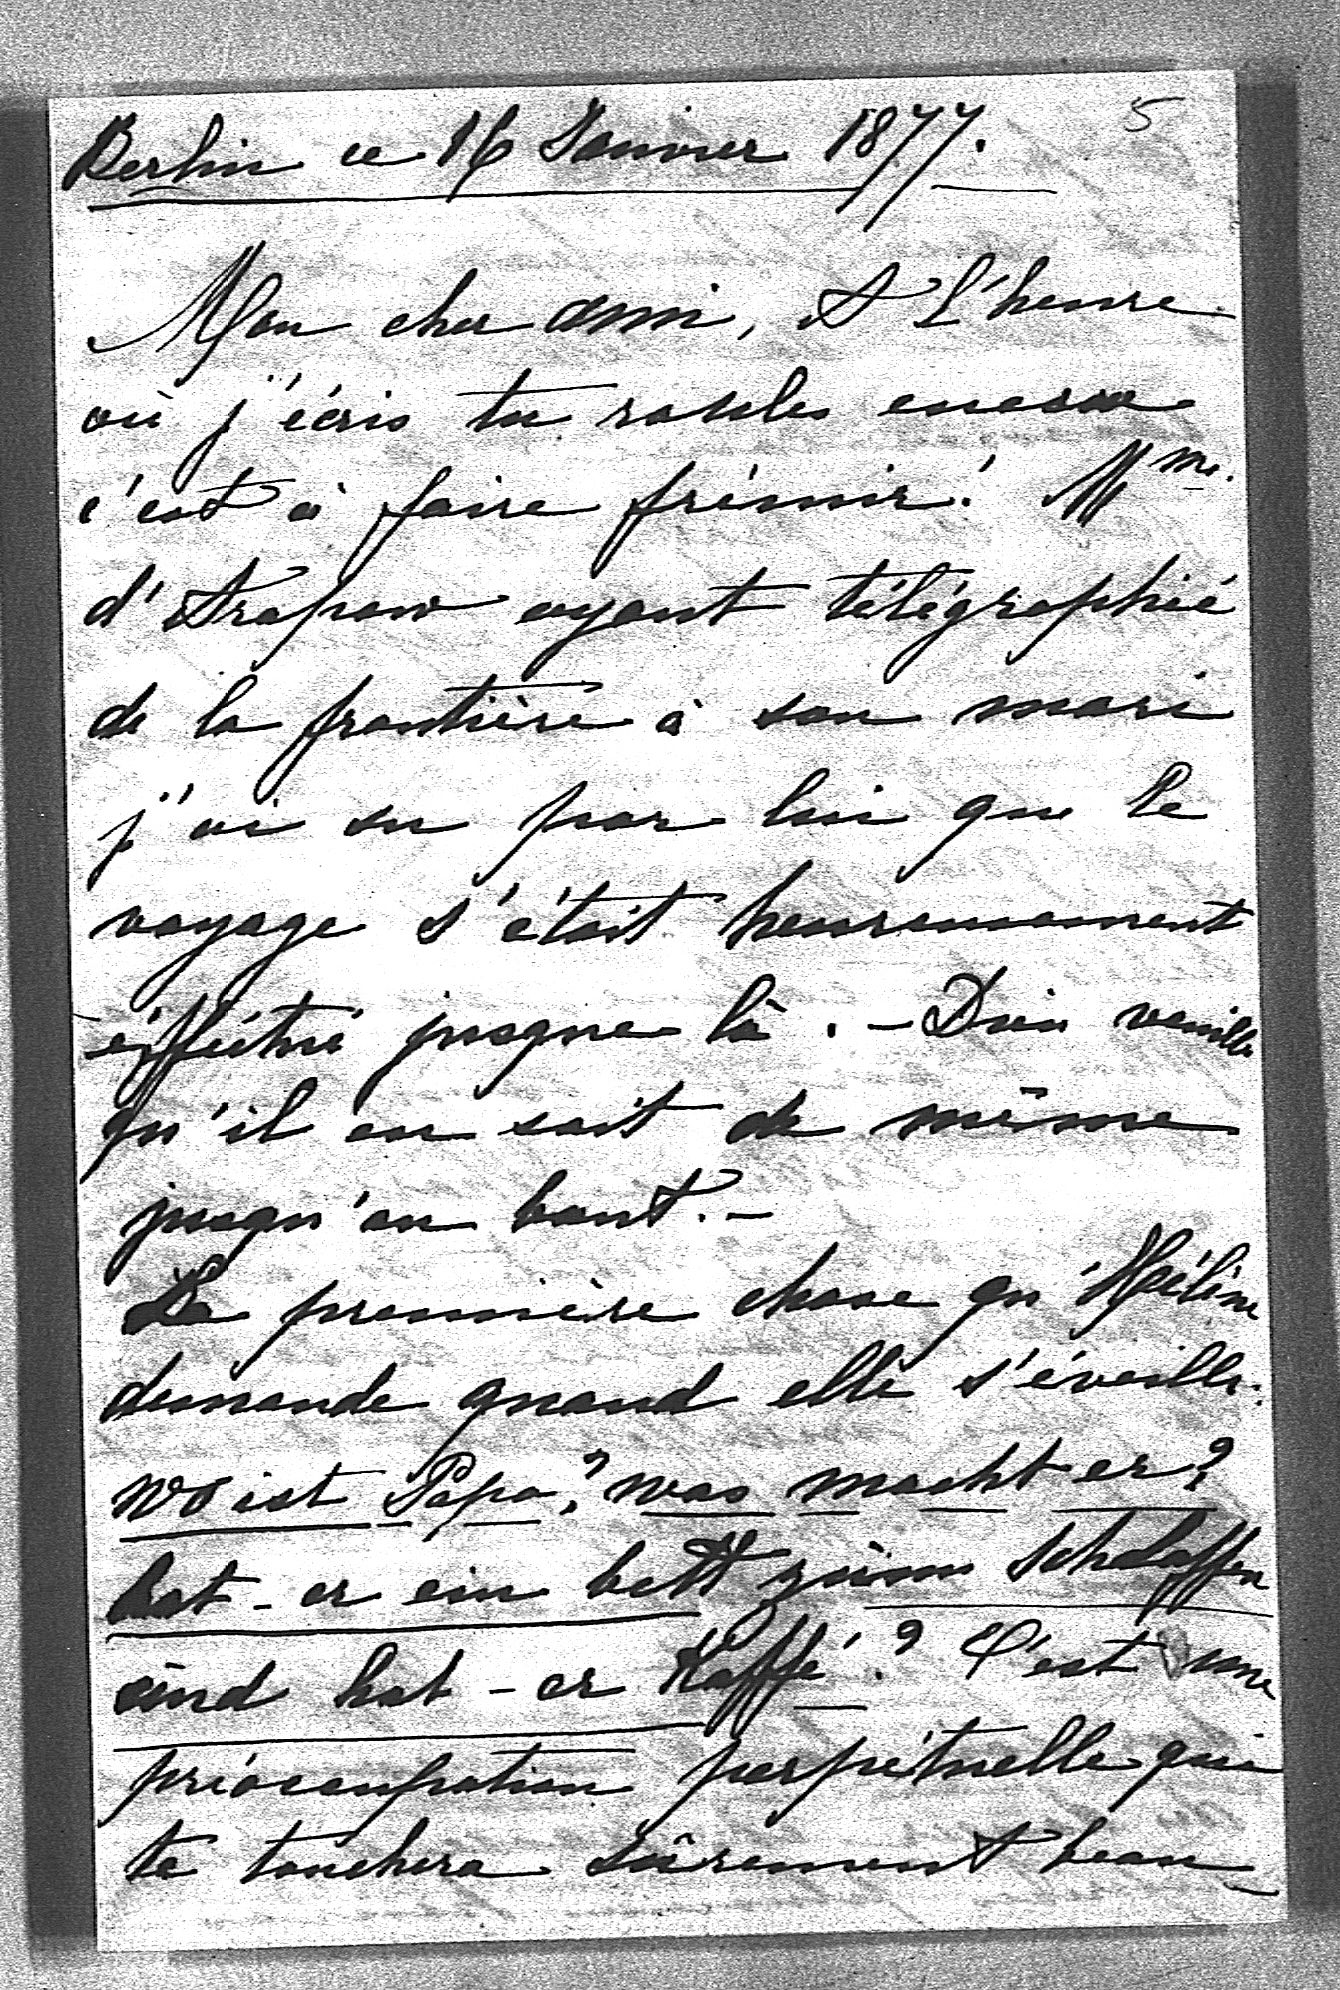 5
Berlin ce 16 Janvier 1877.
Mon cher ami, A l'heure
où j'écris tu roules encore
c'est à faire frémir! Mme.
d'Arapow ayant télégraphié
de la frontière à son mari
j'ai su par lui que le
voyage s'était heureusement
éffectué jusque là. - Dieu veuille
qu'il en soit de même
jusqu'au bout. -
La première chose qu'Hélène
demande quand elle s'éveille:
wo ist Papa? was macht er?
hat - er ein bett zŭm schlaffen
ŭnd hat - er Kaffé? C'est une
préoccupation perpétuelle qui
te touchera sûrement beau-